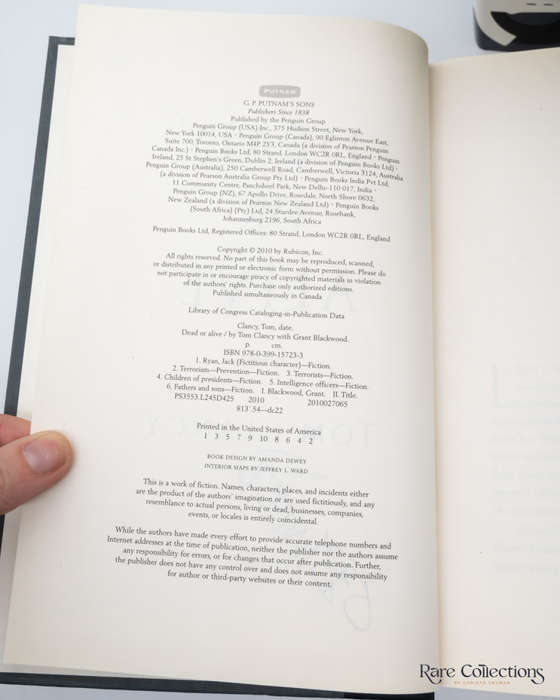 PUTNAM
G. P. PUTNAM'S SONS
Publishers Since 1838
Published by the Penguin Group
Penguin Group (USA) Inc., 375 Hudson Street, New York,
New York 10014, USA · Penguin Group (Canada), 90 Eglinton Avenue East,
Suite 700, Toronto, Ontario M4P 2Y3, Canada (a division of Pearson Penguin
Canada Inc.) · Penguin Books Ltd, 80 Strand, London WC2R 0RL, England · Penguin
Ireland, 25 St Stephen's Green, Dublin 2, Ireland (a division of Penguin Books Ltd) ·
Penguin Group (Australia), 250 Camberwell Road, Camberwell, Victoria 3124, Australia
(a division of Pearson Australia Group Pty Ltd) · Penguin Books India Pvt Ltd,
11 Community Centre, Panchsheel Park, New Delhi–110 017, India ·
Penguin Group (NZ), 67 Apollo Drive, Rosedale, North Shore 0632,
New Zealand (a division of Pearson New Zealand Ltd) · Penguin Books
(South Africa) (Pty) Ltd, 24 Sturdee Avenue, Rosebank,
Johannesburg 2196, South Africa
Penguin Books Ltd, Registered Offices: 80 Strand, London WC2R 0RL, England
Copyright © 2010 by Rubicon, Inc.
All rights reserved. No part of this book may be reproduced, scanned,
or distributed in any printed or electronic form without permission. Please do
not participate in or encourage piracy of copyrighted materials in violation
of the authors' rights. Purchase only authorized editions.
Published simultaneously in Canada
Library of Congress Cataloging-in-Publication Data
Clancy, Tom, date.
Dead or alive / by Tom Clancy with Grant Blackwood.
p. cm.
ISBN 978-0-399-15723-3
1. Ryan, Jack (Fictitious character)—Fiction.
2. Terrorism—Prevention—Fiction. 3. Terrorists—Fiction.
4. Children of presidents—Fiction. 5. Intelligence officers—Fiction.
6. Fathers and sons—Fiction. I. Blackwood, Grant. II. Title.
PS3553.L245D425 2010 2010027065
813'.54—dc22
Printed in the United States of America
1 3 5 7 9 10 8 6 4 2
BOOK DESIGN BY AMANDA DEWEY
INTERIOR MAPS BY JEFFREY L. WARD
This is a work of fiction. Names, characters, places, and incidents either
are the product of the authors' imagination or are used fictitiously, and any
resemblance to actual persons, living or dead, businesses, companies,
events, or locales is entirely coincidental.
While the authors have made every effort to provide accurate telephone numbers and
Internet addresses at the time of publication, neither the publisher nor the authors assume
any responsibility for errors, or for changes that occur after publication. Further,
the publisher does not have any control over and does not assume any responsibility
for author or third-party websites or their content.
Rare Collections